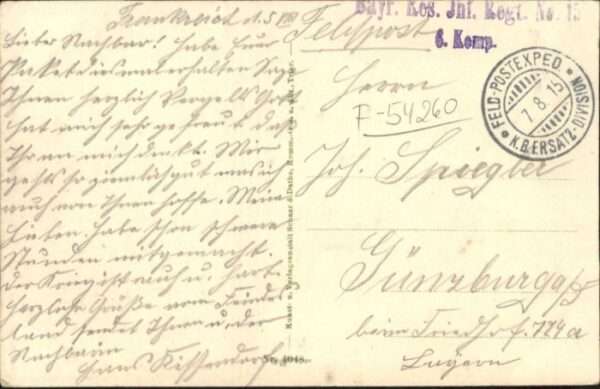 Frankreich d. 5. VIII
Lieber Nachbar! habe Euer
Paket dies mal erhalten Sage
Ihnen herzlich Vergelts Gott
hat mich sehr gefreut daß
Ihr an mich denkt. Mir
gehts so ziemlich gut was ich
auch von Ihnen hoffe. Mein
Lieben habe schon schwere
Stunden mitgemacht.
der Krieg ist auch u. hart.
herzlche Grüße vom Feindes
land sendet Ihnen u. der
Nachbarin
Hans
Bayr. Res. Inf. Regt. No. 15
6. Komp.
Feldpost
FELD-POSTEXPED
7.8.15
K.B.ERSATZ-DIVISION
Herrn
F-54260
Joh. Spiegler
Günzburg a/D
beim Friedhof. 114a
Bayern
Kunst- u. Verlagsanstalt Schaar & Dathe, Komm.-Ges. a. Akt., Trier.
No. 4048.